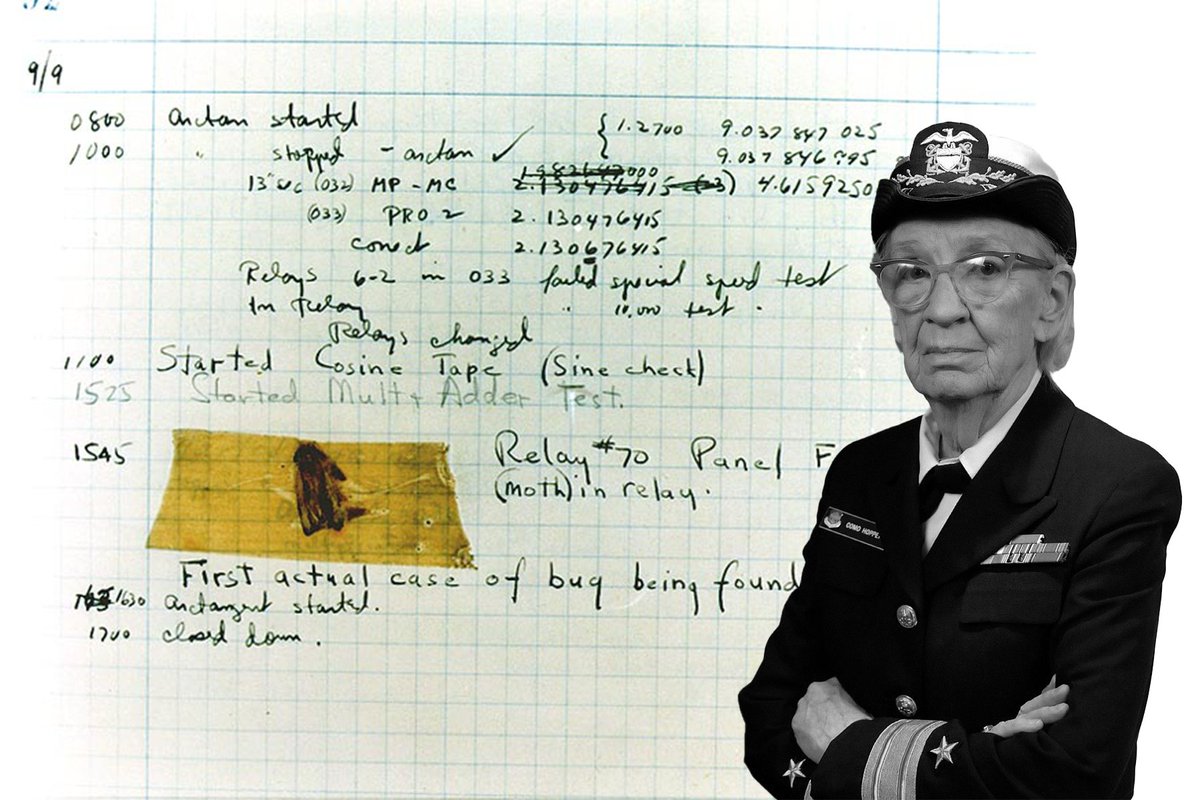 92
9/9
0800 Arctan started { 1.2700 9.037 847 025
1000 " stopped - arctan ✓ { 9.037 846 995
13"uc (032) MP - MC 2.130476415 (-3) 4.6159250
(033) PRO 2 2.130476415
conect 2.130676415
Relays 6-2 in 033 failed special speed test
In Relay " 10.000 test .
Relays changed
1100 Started Cosine Tape (Sine check)
1525 Started Mult + Adder Test.
1545 Relay #70 Panel F
(moth) in relay.
First actual case of bug being found
1630 arctangent started.
1700 closed down .
COMO HOPPE